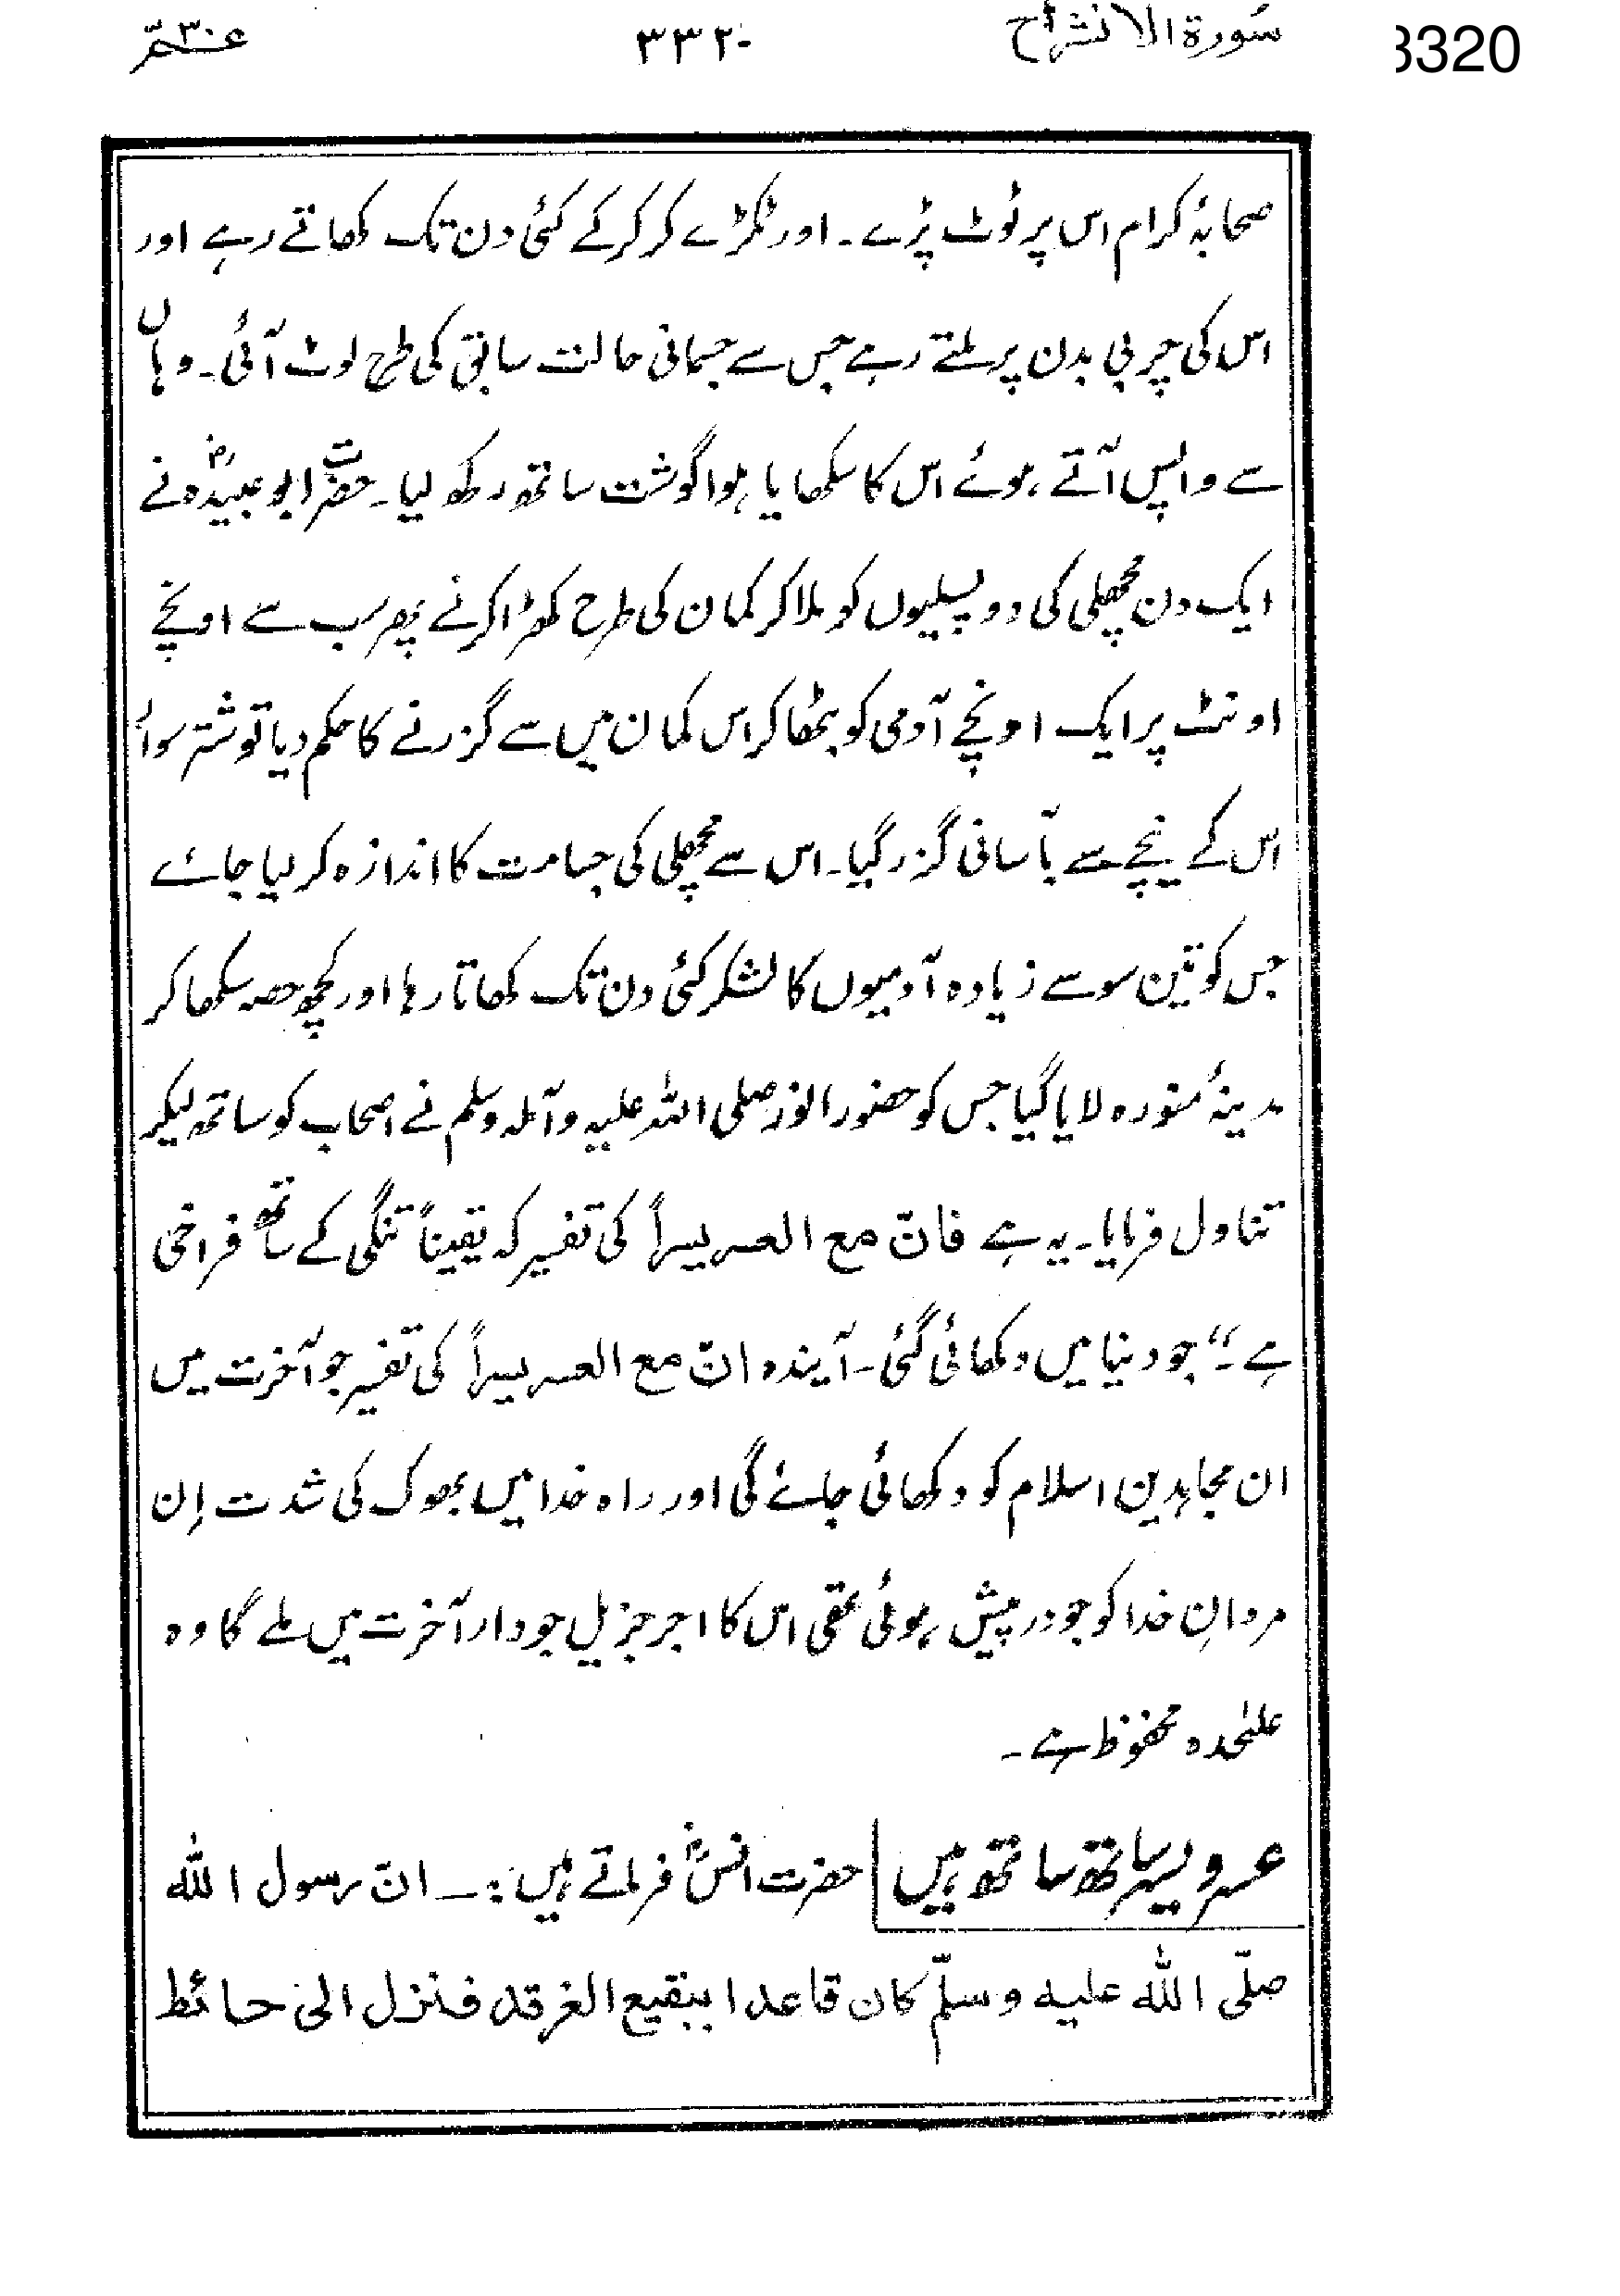 سُورة الانشراح
۳۳۲۰
عمّ ۳۰
3320
صحابۂ کرام اس پر ٹوٹ پڑے۔ اور ٹکڑے کر کر کے کئی دن تک کھاتے رہے اور
اس کی چربی بدن پر ملتے رہے جس سے جسمانی حالت سابق کی طرح لوٹ آئی۔ وہاں
سے واپس آتے ہوئے اس کا سکھایا ہوا گوشت ساتھ رکھ لیا۔ حضرت ابو عبیدہؓ نے
ایک دن مچھلی کی دو پسلیوں کو ملا کر کمان کی طرح کھڑا کرنے پھر سب سے اونچے
اونٹ پر ایک اونچے آدمی کو بٹھا کر اس کمان میں سے گزرنے کا حکم دیا تو شتر سوار
اس کے نیچے سے بآسانی گزر گیا۔ اس سے مچھلی کی جسامت کا اندازہ کر لیا جائے
جس کو تین سو سے زیادہ آدمیوں کا لشکر کئی دن تک کھاتا رہا اور کچھ حصہ سکھا کر
مدینۂ منورہ لایا گیا جس کو حضور انور صلی اللہ علیہ وآلہ وسلم نے اصحاب کو ساتھ لیکر
تناول فرمایا۔ یہ ہے فانّ مع العسر یسراً کی تفسیر کہ یقیناً تنگی کے ساتھ فراخی
ہے۔“ جو دنیا میں دکھائی گئی۔ آیندہ انّ مع العسر یسراً کی تفسیر جو آخرت میں
ان مجاہدین اسلام کو دکھائی جائے گی اور راہ خدا میں بھوک کی شدت اِن
مردانِ خدا کو جو درپیش ہوئی تھی اس کا اجر جزیل جو دار آخرت میں ملے گا وہ
علیٰحدہ محفوظ ہے۔
عسر و یسر ساتھ ساتھ ہیں حضرت انسؓ فرماتے ہیں:۔ انّ رسول اللہ
صلّی اللہ علیہ وسلّم کان قاعدا ببقیع الغرقد فنزل الیٰ حائط